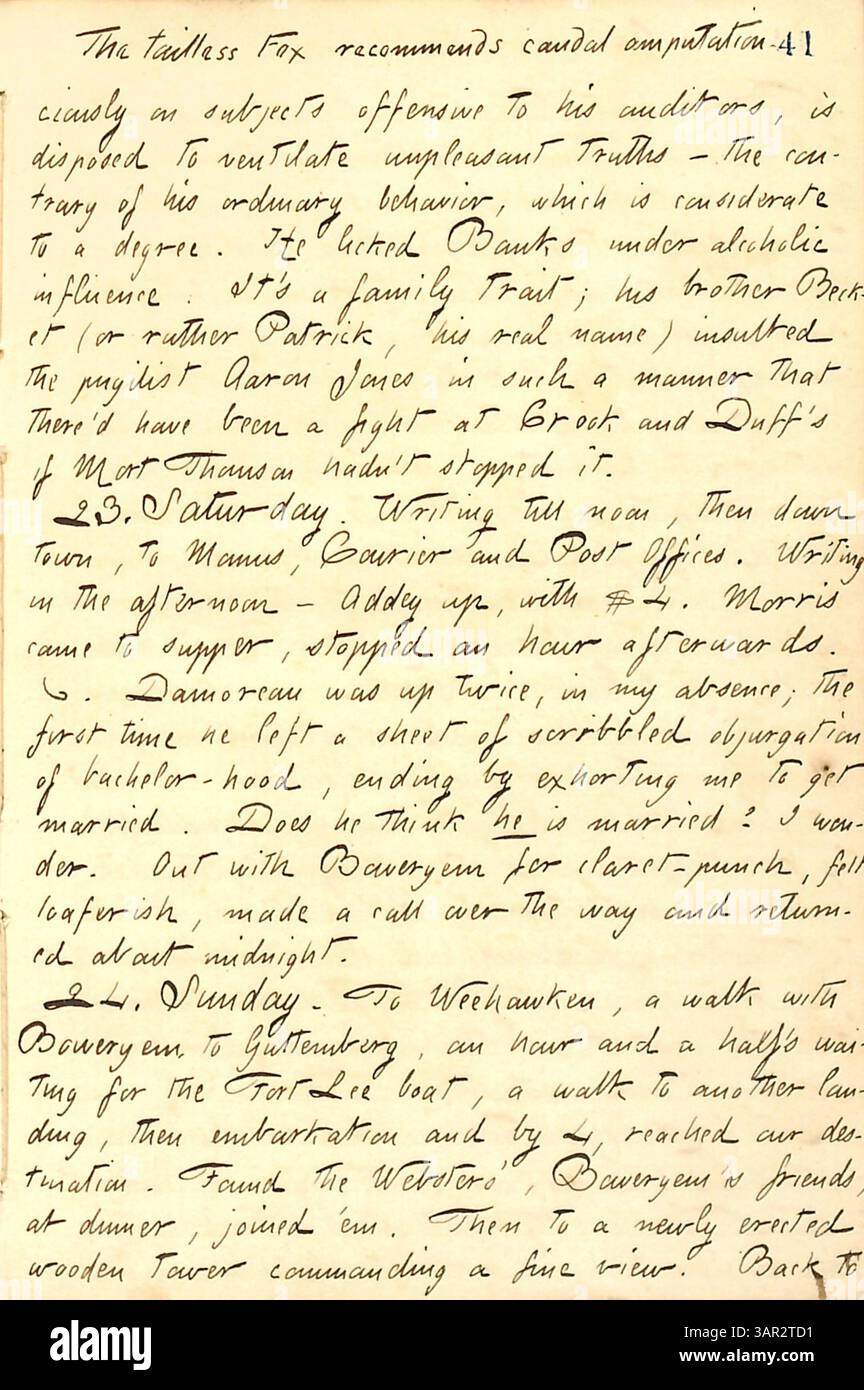 The tailless Fox recommends caudal amputation. 41
ciously on subjects offensive to his auditors, is
disposed to ventilate unpleasant truths — the con-
trary of his ordinary behavior, which is considerate
to a degree. He licked Banks under alcoholic
influence. It's a family trait; his brother Beck-
et (or rather Patrick, his real name) insulted
the pugilist Aaron Jones in such a manner that
there'd have been a fight at Crook and Duff's
if Mort Thomson hadn't stopped it.
23. Saturday. Writing till noon, then down
town, to Momus, Courier and Post Offices. Writing
in the afternoon — Addey up, with $4. Morris
came to supper, stopped an hour afterwards.
Damoreau was up twice, in my absence; the
first time he left a sheet of scribbled objurgation
of bachelor-hood, ending by exhorting me to get
married. Does he think he is married? I won-
der. Out with Boweryem for claret-punch, felt
loaferish, made a call over the way and return-
ed about midnight.
24. Sunday. To Weehawken, a walk with
Boweryem to Guttemberg, an hour and a half's wai-
ting for the Fort Lee boat, a walk to another lan-
ding, then embarkation and by 4, reached our des-
tination. Found the Websters', Boweryem's friends,
at dinner, joined 'em. Then to a newly erected
wooden tower commanding a fine view. Back to
alamy
Image ID: 3AR2TD1
www.alamy.com